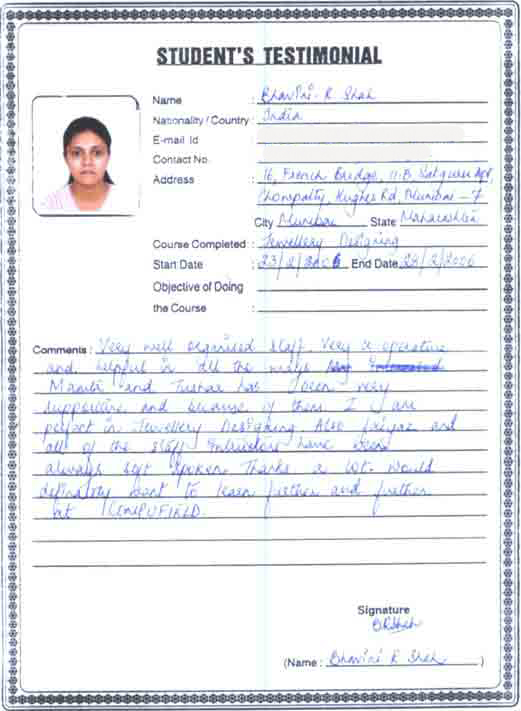 STUDENT'S TESTIMONIAL
Name : Bhavini R Shah
Nationality / Country : India
E-mail Id
Contact No.
Address : 16, French Bridge, 11-B Satguru Apt,
Chowpatty, Hughes Rd, Mumbai - 7
City Mumbai State Maharashtra
Course Completed : Jewellery Designing
Start Date : 23/2/2006 End Date 28/2/2006
Objective of Doing
the Course :
Comments : Very well organised staff. Very co operative
and helpful in all the ways
Mamta and Tushar has been very
supportive and because of them I are
perfect in Jewellery Designing. Also Faiyaz and
all of the staff Intrustors have been
always soft spoken. Thanks a lot. Would
definately want to learn further and further
at COMPUFIELD.
Signature
BRShah
(Name : Bhavini R Shah )